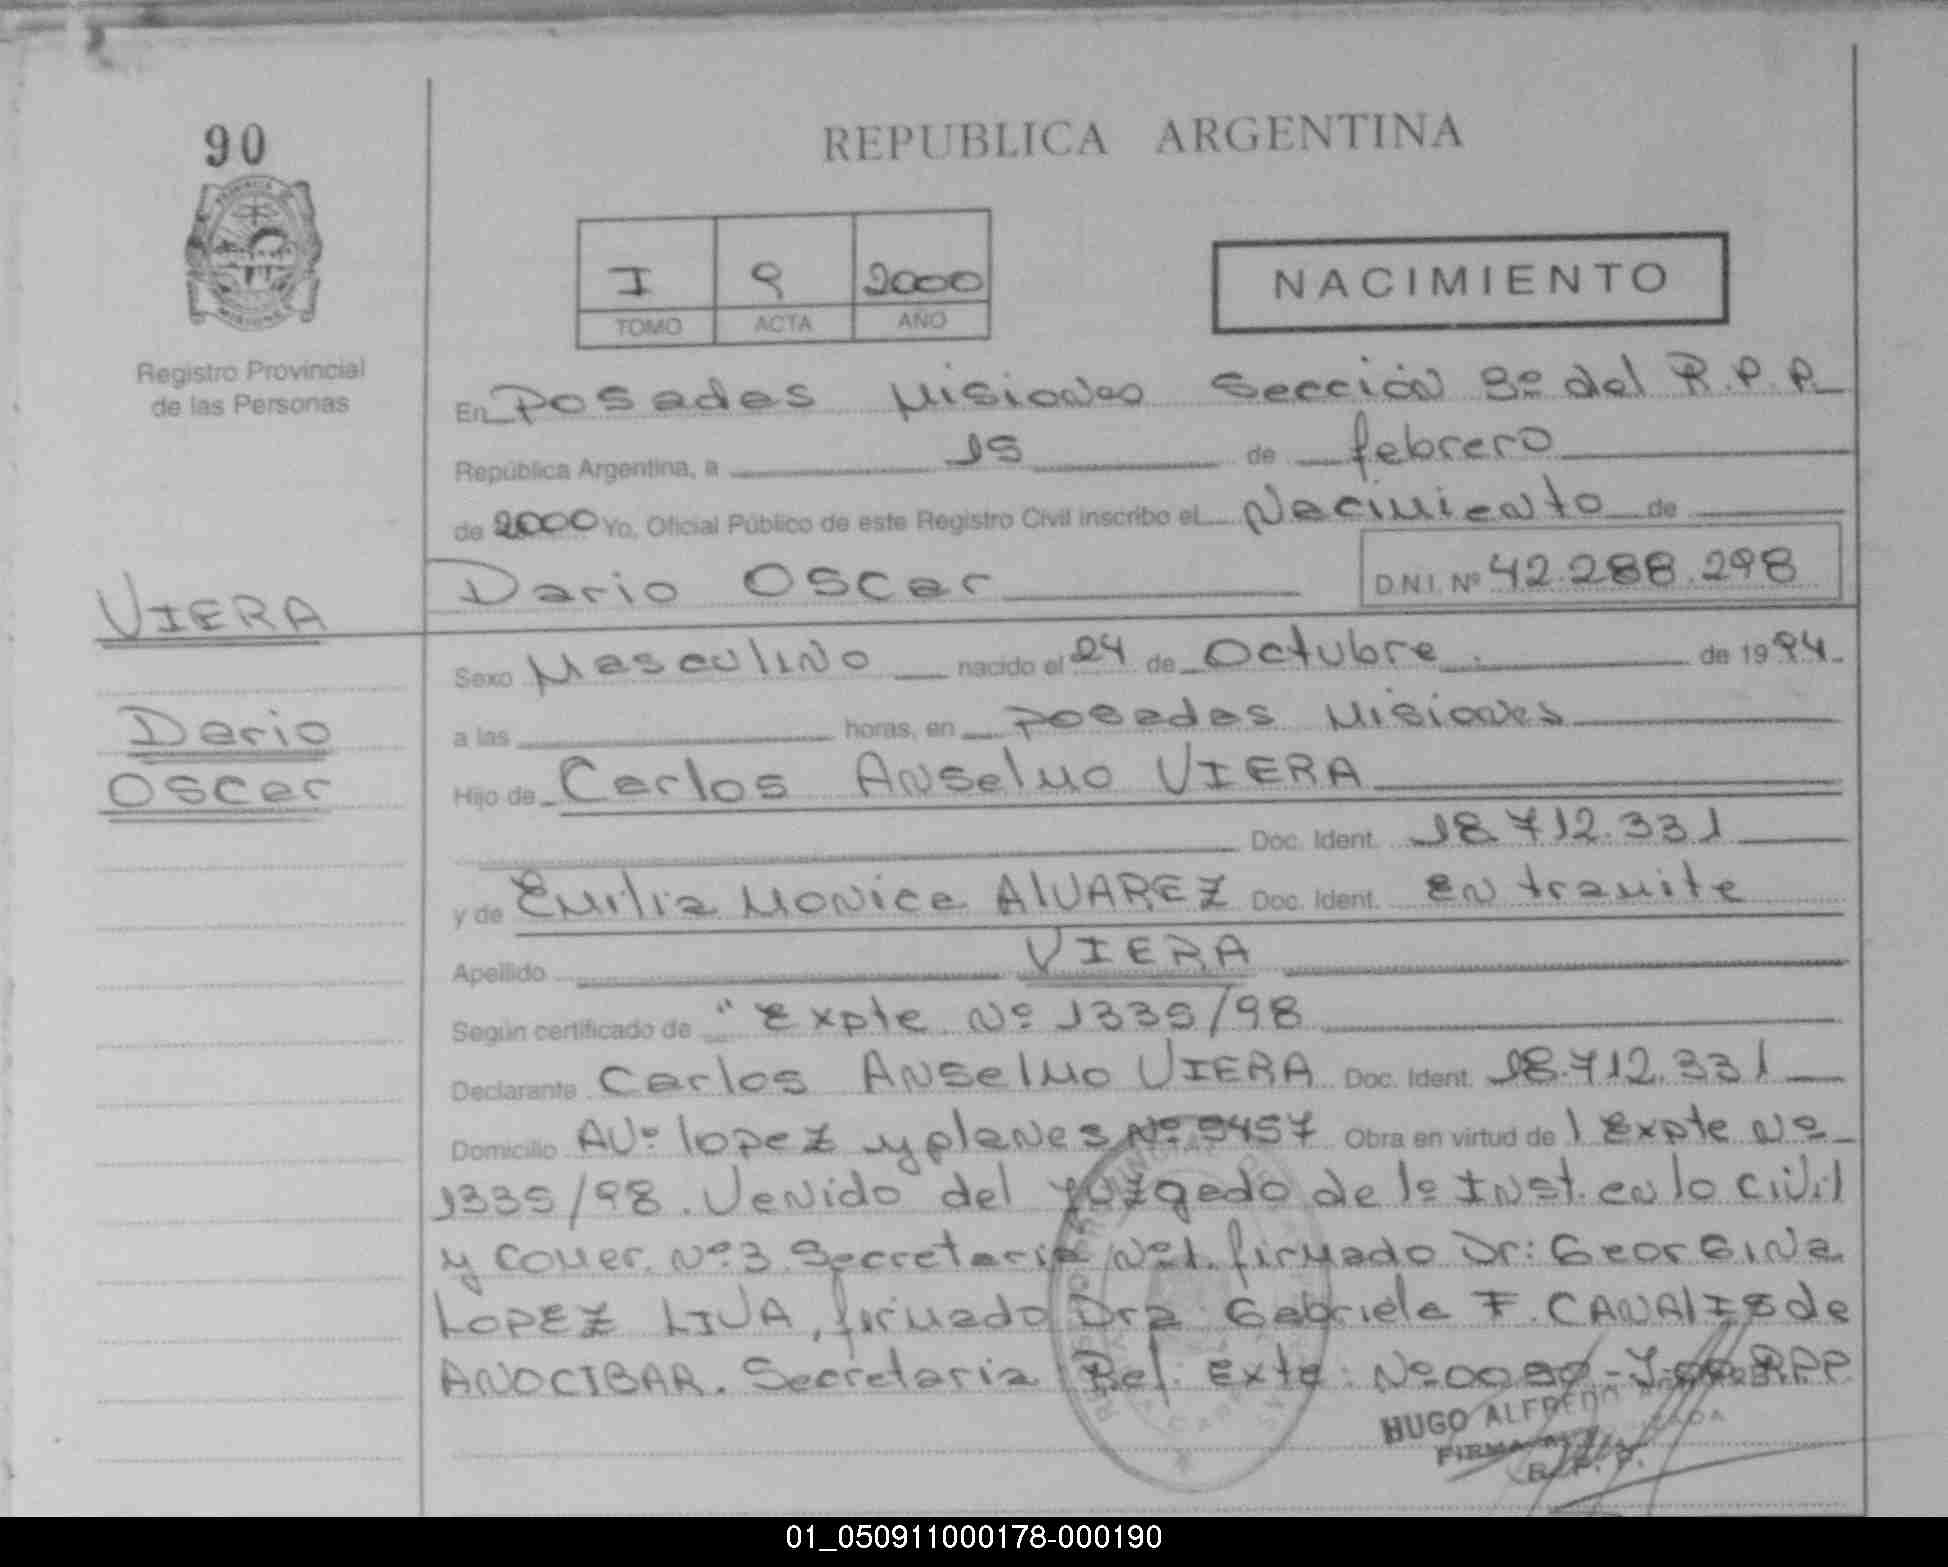 90
REPUBLICA ARGENTINA
I 9 2000
TOMO ACTA AÑO
NACIMIENTO
Registro Provincial
de las Personas
En Posadas Misiones Sección 8º del R.P.P.
República Argentina, a 15 de febrero
de 2000 Yo, Oficial Público de este Registro Civil inscribo el Nacimiento de
Dario Oscar D.N.I. Nº 42.288.298
VIERA
Dario
Oscar
Sexo Masculino nacido el 24 de Octubre de 1994
a las horas, en Posadas Misiones
Hijo de Carlos Anselmo VIERA
Doc. Ident. 18.712.331
y de Emilia Monica ALVAREZ Doc. Ident. En tramite
Apellido VIERA
Según certificado de "Expte Nº 1335/98
Declarante Carlos Anselmo VIERA Doc. Ident. 18.712.331
Domicilio AVº lopez y planes Nº 5457 Obra en virtud de 1 Expte Nº
1335/98. Venido del juzgado de 1º Inst. en lo civil
y comer. Nº 3 Secretaria Nº 1. firmado Dr: Georgina
LOPEZ LIVA, firmado Dra Gabriela F. CANALIS de
ANOCIBAR. Secretaria Ref. Exte: Nº R.P.P.
HUGO ALFREDO
FIRMA
R. P. P.
01_050911000178-000190